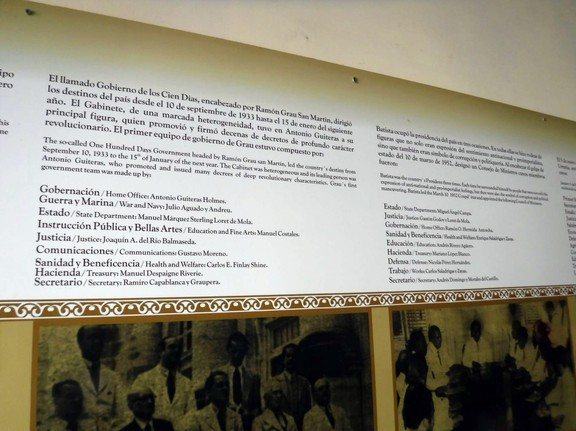 ipo
ero
his
ne
El llamado Gobierno de los Cien Días, encabezado por Ramón Grau San Martín, dirigió
los destinos del país desde el 10 de septiembre de 1933 hasta el 15 de enero del siguiente
año. El Gabinete, de una marcada heterogeneidad, tuvo en Antonio Guiteras a su
principal figura, quien promovió y firmó decenas de decretos de profundo carácter
revolucionario. El primer equipo de gobierno de Grau estuvo compuesto por:
The so-called One Hundred Days Government headed by Ramón Grau san Martín, led the country´s destiny from
September 10, 1933 to the 15th of January of the next year. The Cabinet was heterogeneous and its leading person was
Antonio Guiteras, who promoted and issued many decrees of deep revolutionary characteristics. Grau´s first
government team was made up by:
Gobernación / Home Office: Antonio Guiteras Holmes.
Guerra y Marina / War and Navy: Julio Aguado y Andreu.
Estado / State Department: Manuel Márquez Sterling Loret de Mola.
Instrucción Pública y Bellas Artes / Education and Fine Arts: Manuel Costales.
Justicia / Justice: Joaquín A. del Río Balmaseda.
Comunicaciones / Communications: Gustavo Moreno.
Sanidad y Beneficencia / Health and Welfare: Carlos E. Finlay Shine.
Hacienda / Treasury: Manuel Despaigne Riverie.
Secretario / Secretary: Ramiro Capablanca y Graupera.
Batista ocupó la presidencia del país en tres ocasiones. En todas ellas se hizo rodear de
figuras que no solo eran expresión del sentimiento antinacional y proimperialista,
sino que también eran símbolo de corrupción y politiquería. Al consumar el golpe de
estado del 10 de marzo de 1952, designó un Consejo de Ministros compuesto, entre
otros, por:
Batista was the country´s President three times. Each time he surrounded himself by people that were not only the
Estado / State Department: Miguel Ángel Campa.
Justicia / Justice:
Gobernación / Home Office: Ramón O. Hermida Antorcha.
Sanidad y Beneficencia / Health and Welfare: Enrique Saladrigas y Zayas.
Educación / Education: Andrés Rivero Agüero.
Hacienda / Treasury: Marino López Blanco.
Defensa / Defense: Nicolás Pérez Hernández.
Trabajo / Work: Carlos Saladrigas y Zayas.
Secretario / Secretary: Andrés Domingo y Morales del Castillo.